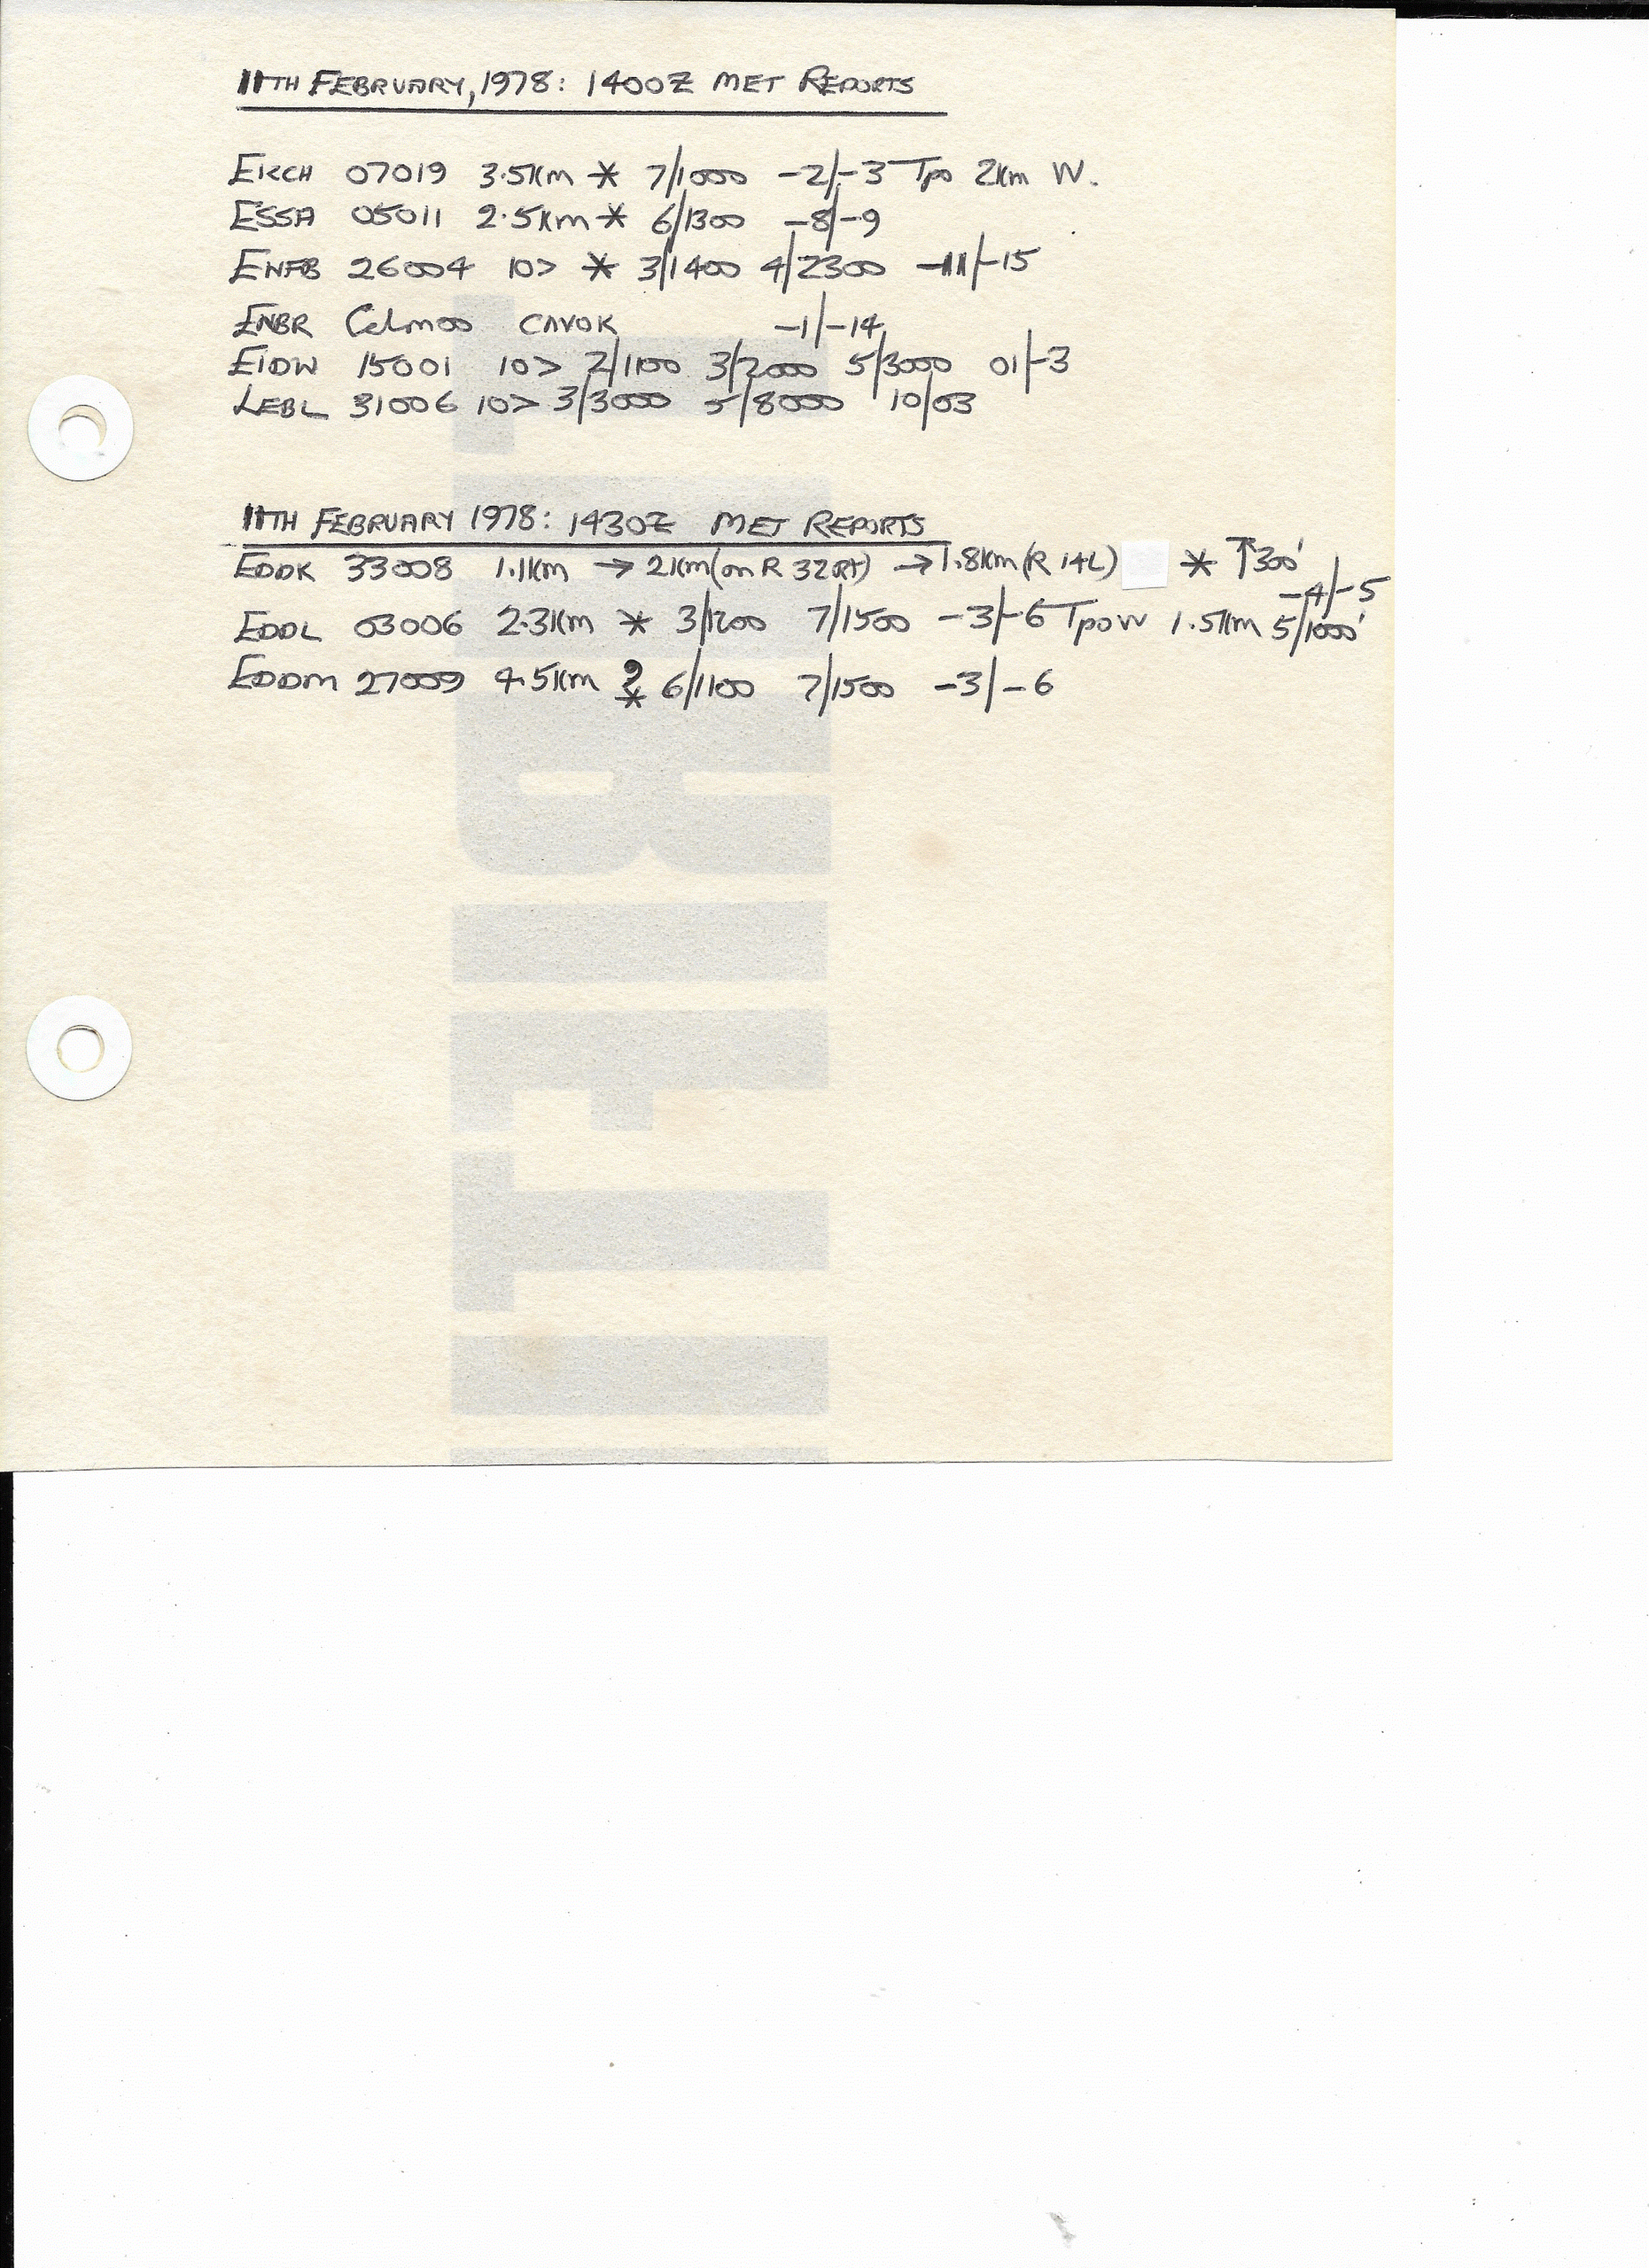 11TH FEBRUARY, 1978: 1400Z MET REPORTS
EKCH 07019 3.5Km * 7/1000 -2/-3 Tpo 2Km W.
ESSA 05011 2.5Km * 6/1300 -8/-9
ENFB 26004 10> * 3/1400 4/2300 -11/-15
ENBR Calm00 CAVOK -1/-14
EIDW 15001 10> 2/1100 3/2000 5/3000 01/-3
LEBL 31006 10> 3/3000 5/8000 10/03
11TH FEBRUARY 1978: 1430Z MET REPORTS
EDDK 33008 1.1Km → 2Km (on R 32Rt) → 1.8Km (R 14L) * ↑300'
-4/-5
EDDL 03006 2.3Km * 3/1200 7/1500 -3/-6 Tpo W 1.5Km 5/1000'
EDDM 27009 4.5Km * 6/1100 7/1500 -3/-6